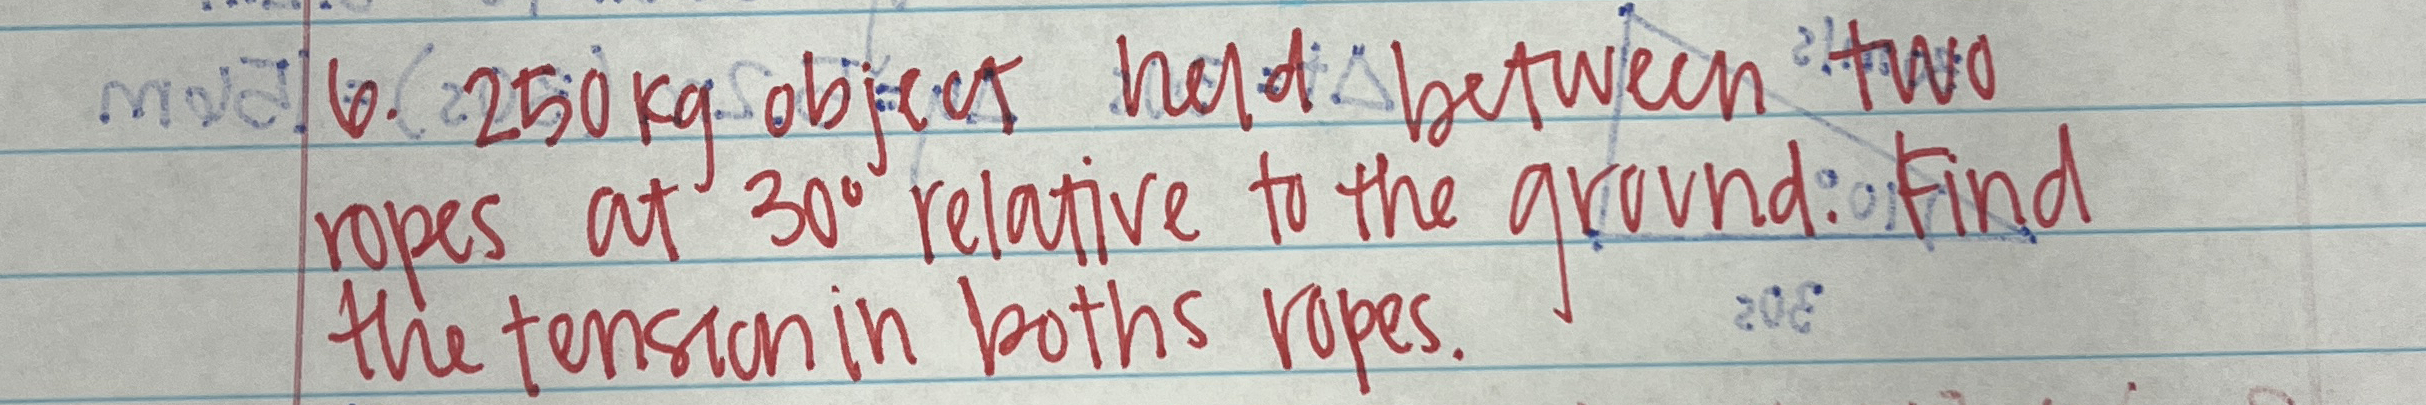 6. 250kg object held between two
ropes at 30° relative to the ground. Find
the tension in boths ropes.